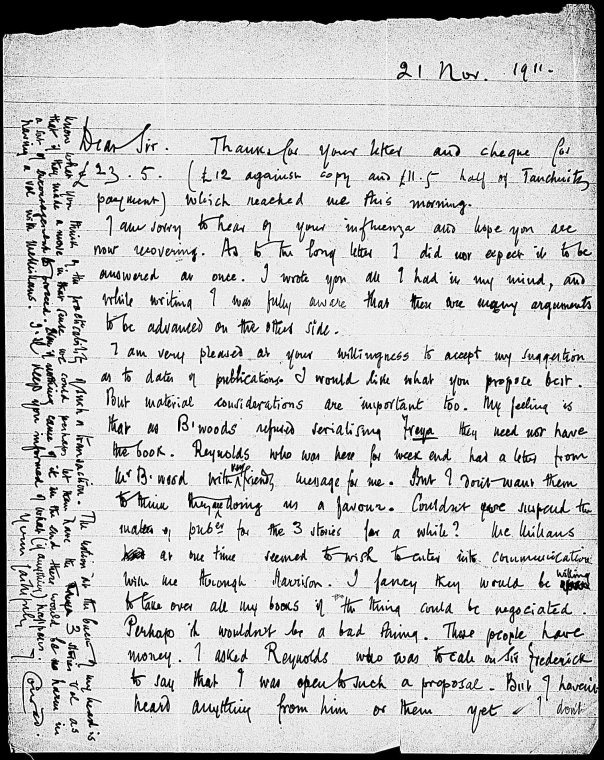 21 Nov. 1911.
Dear Sir. Thanks for your letter and cheque for
£23.5. (£12 against copy and £11.5 half of Tauchnitz
payment) which reached me this morning.
I am sorry to hear of your influenza and hope you are
now recovering. As to the long letter I did not expect it to be
answered at once. I wrote you all I had in my mind, and
while writing I was fully aware that there were many arguments
to be advanced on the other side.
I am very pleased at your willingness to accept my suggestion
as to dates of publications. I would like what you propose best.
But material considerations are important too. My feeling is
that as B'woods refused serialising Freya they need not have
the book. Reynolds who was here for week end had a letter from
Mr B'wood with very friendly message for me. But I don't want them
to think they are doing us a favour. Couldn't we suspend the
matter of puber for the 3 stories for a while? McMillans
at one time seemed to wish to enter into communication
with me through Harrison. I fancy they would be willing
to take over all my books if the thing could be negotiated.
Perhaps it wouldn't be a bad thing. These people have
money. I asked Reynolds who was to call on Sir Frederick
to say that I was open to such a proposal. But I haven't
heard anything from him or them yet. I don't
know what you think of the practicability of such a transaction. The notion at the back of my head is
that if they made a move in that sense we could perhaps let them have the 3 stories vol as
a sort of encouragement to proceed. Even if nothing came of it in the end there would be no harm in
having a vol with McMillans. I'll keep you informed of what (if anything) happens.
Yours faithfully
Conrad.